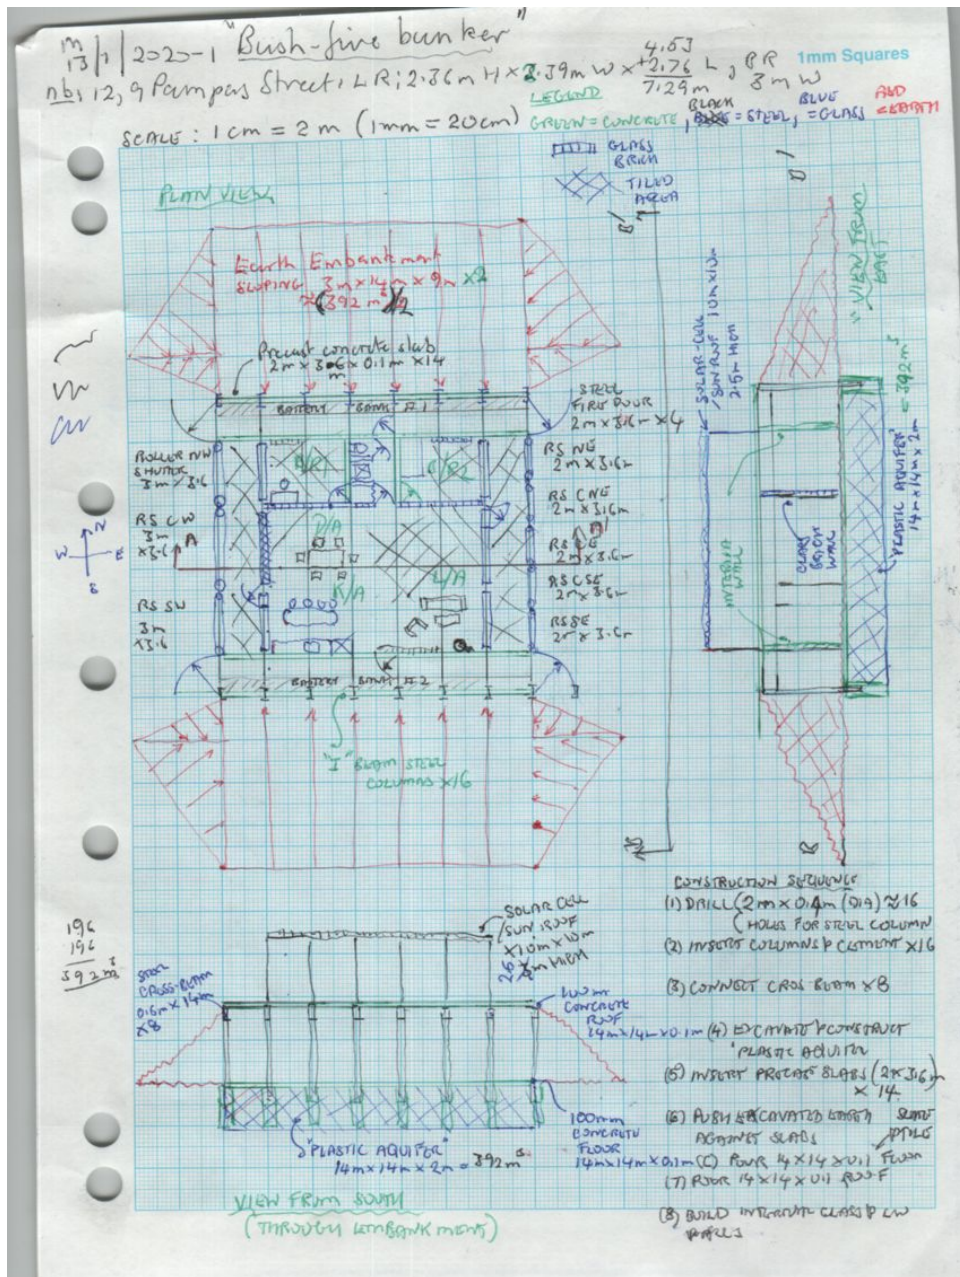 m/13/1/2020-1 "Bush-fire bunker"
nb, 12, 9 Pampas Street, LR; 2.36m H x 2.39m W x
4.53
+2.76 L, BR
7.29m 3m W
1mm Squares
SCALE: 1cm = 2m (1mm = 20cm)
LEGEND
GREEN = CONCRETE, BLACK = STEEL, BLUE = GLASS RED = EARTH
GLASS BRICK
TILED AREA
PLAN VIEW
Earth Embankment
SLOPING 3m x 14m x 9m x2
(392 m³)/2
Precast concrete slab
2m x 3.6m x 0.1m x14
BATTERY BANK #1
STEEL
FIRE DOOR
2m x 3.6m x 4
ROLLER NW
SHUTTER
3m x 3.6
RS CW
3m
x3.6
RS SW
3m
x3.6
RS NE
2m x 3.6m
RS CNE
2m x 3.6m
RS CE
2m x 3.6m
RS CSE
2m x 3.6m
RS SE
2m x 3.6m
N
W E
S
A
A'
B/R1
B/R2
D/A
K/A
L/A
BATTERY BANK #2
"I" BEAM STEEL
COLUMNS x16
B'
B
"VIEW FROM
EAST"
SOLAR-CELL
SUNROOF 10m x 10m
2.5m HIGH
INTERNAL
WALL
GLASS
BRICK
WALL
"PLASTIC AQUIFER"
14m x 14m x 2m
= 392m³
196
196
392m³
SOLAR CELL
SUN ROOF
x10m x 10m
HIGH
STEEL
CROSS-BEAM
0.6m x 14m
x8
100mm
CONCRETE
ROOF
14m x 14m x 0.1m
100mm
CONCRETE
FLOOR
14m x 14m x 0.1m
"PLASTIC AQUIFER"
14m x 14m x 2m = 392m³
VIEW FROM SOUTH
(THROUGH EMBANKMENT)
CONSTRUCTION SEQUENCE
(1) DRILL (2m x 0.4m (0.9) ≈ 16
HOLES FOR STEEL COLUMN
(2) INSERT COLUMNS & CEMENT x16
(3) CONNECT CROS BEAM x8
(4) EXCAVATE & CONSTRUCT
"PLASTIC AQUIFER
(5) INSERT PRECAST SLABS (2 x 3.6)m
x 14
(6) PUSH EXCAVATED EARTH
AGAINST SLABS
POUR 14 x 14 x 0.1 FLOOR
(7) POUR 14 x 14 x 0.1 ROOF
(8) BUILD INTERNAL GLASS &
WALLS